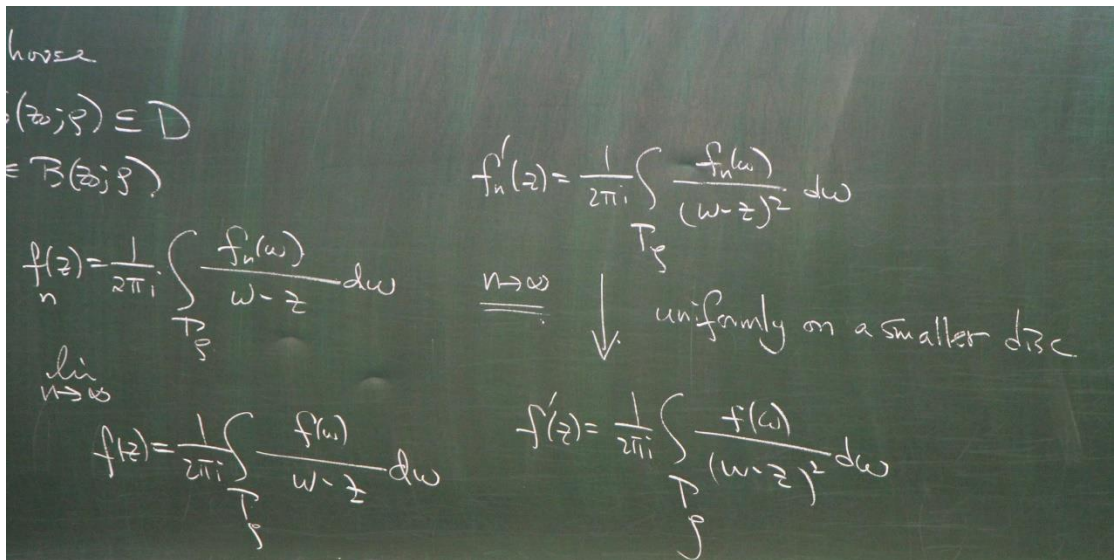 hoose
(z₀;ρ) ⊆ D
∈ B(z₀;ρ)
fₙ(z) = 1/2πi ∫_{Γρ} fₙ(ω)/(ω-z) dω
lim n→∞
f(z) = 1/2πi ∫_{Γρ} f(ω)/(ω-z) dω
fₙ'(z) = 1/2πi ∫_{Γρ} fₙ(ω)/(ω-z)² dω
n→∞ ↓ uniformly on a smaller disc
f'(z) = 1/2πi ∫_{Γρ} f(ω)/(ω-z)² dω